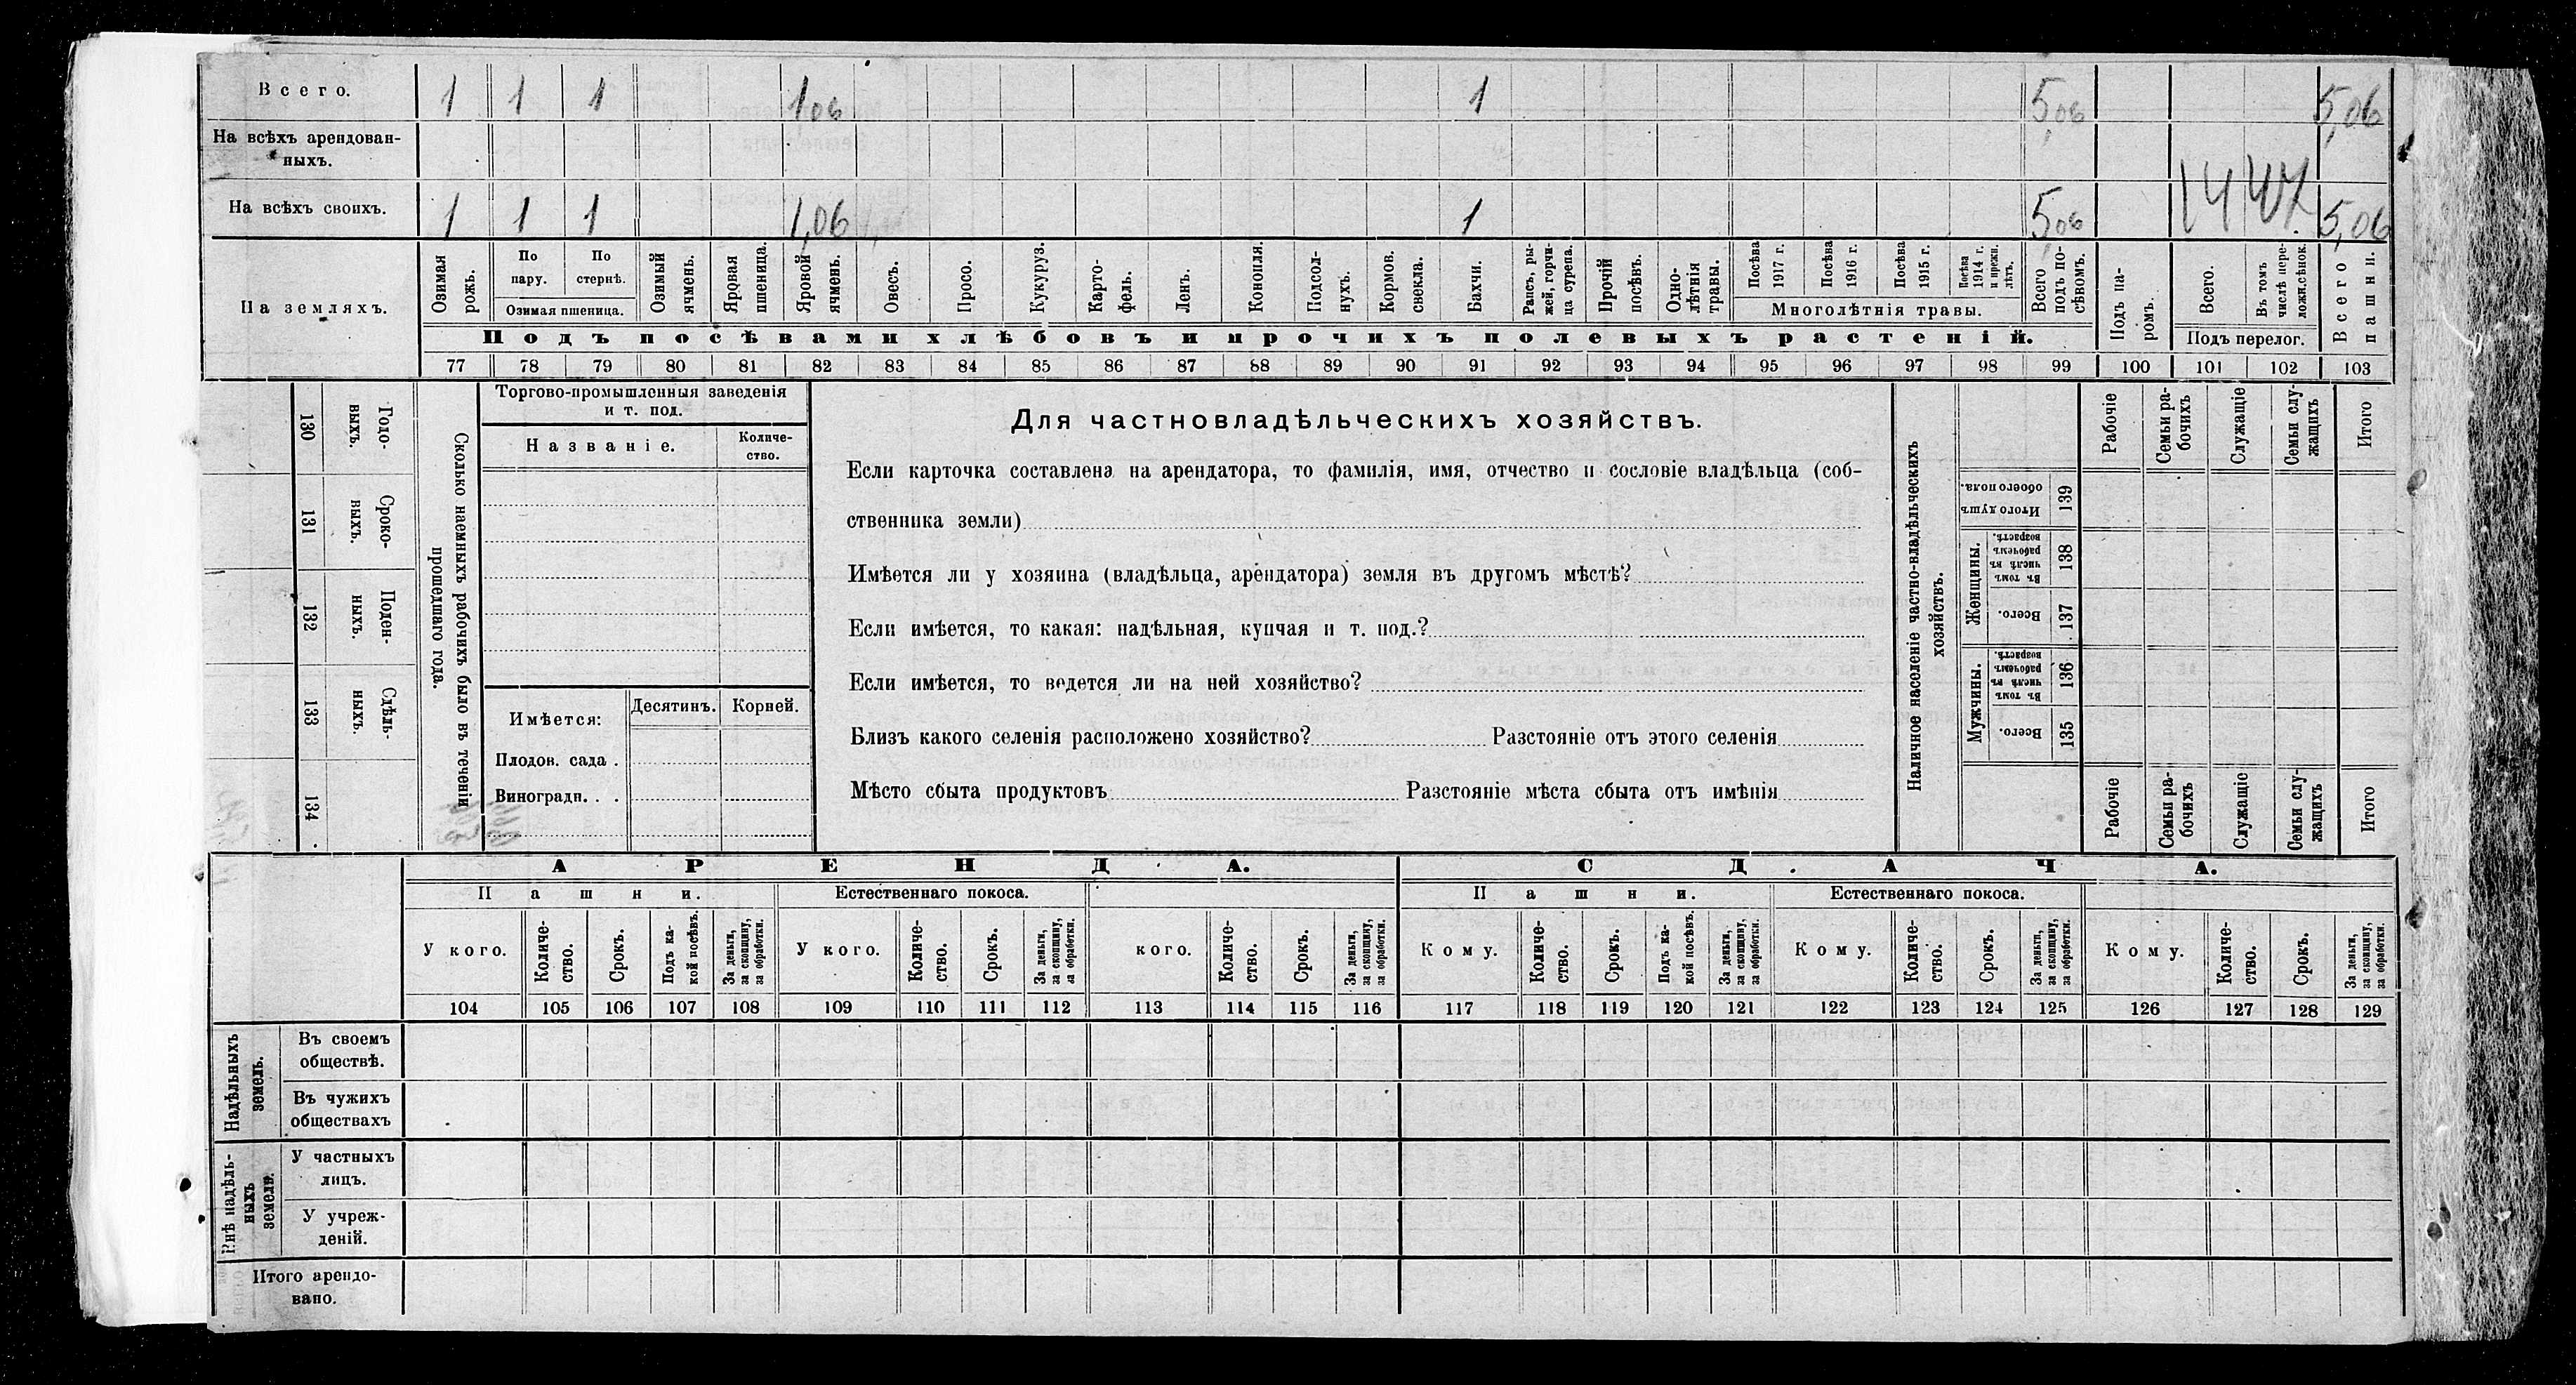 Всего. 1 1 1 1,06 1 5,06 5,06
На всѣхъ арендован-
ныхъ.
1447
На всѣхъ своихъ. 1 1 1 1,06 1 5,06 5,06
На земляхъ.
Озимая рожь.
По пару.
По стернѣ.
Озимая пшеница.
Озимый ячмень.
Яровая пшеница.
Яровой ячмень.
Овесъ.
Просо.
Кукуруз.
Карто-
фель.
Ленъ.
Конопля.
Подсол-
нухъ.
Кормов. свекла.
Бахчи.
Рапсъ, ры-
жей, горчи-
ца сурепа.
Прочій посѣвъ.
Одно-
лѣтнія травы.
Посѣва 1917 г.
Посѣва 1916 г.
Посѣва 1915 г.
Посѣва 1914 г. и прежн. лѣтъ.
Многолѣтнія травы.
Всего подъ по-
сѣвомъ.
Подъ па-
ромъ.
Всего.
Въ томъ числѣ пере-
ложн.сѣнок.
Подъ перелог.
Всего пашни.
Подъ посѣвами хлѣбовъ и прочихъ полевыхъ растеній.
77 78 79 80 81 82 83 84 85 86 87 88 89 90 91 92 93 94 95 96 97 98 99 100 101 102 103
130 Годо-
выхъ.
131 Сроко-
выхъ.
132 Поден-
ныхъ.
133 Сдѣль-
ныхъ.
134
Сколько наемныхъ рабочихъ было въ теченіи
прошедшаго года.
Торгово-промышленныя заведенія
и т. под.
Названіе.
Количе-
ство.
Имѣется: Десятинъ. Корней.
Плодов. сада .
Виноградн. . .
Для частновладѣльческихъ хозяйствъ.
Если карточка составлена на арендатора, то фамилія, имя, отчество и сословіе владѣльца (соб-
ственника земли)
Имѣется ли у хозяина (владѣльца, арендатора) земля въ другомъ мѣстѣ?
Если имѣется, то какая: надѣльная, купчая и т. под.?
Если имѣется, то ведется ли на ней хозяйство?
Близъ какого селенія расположено хозяйство? Разстояніе отъ этого селенія
Мѣсто сбыта продуктовъ Разстояніе мѣста сбыта отъ имѣнія
Наличное населеніе частно-владѣльческихъ
хозяйствъ.
Рабочіе
Семьи ра-
бочихъ
Служащіе
Семьи слу-
жащихъ
Итого
Итого душъ обоего пола. 139
Женщины.
Въ томъ числѣ въ рабочемъ возрастѣ. 138
Всего. 137
Мужчины.
Въ томъ числѣ въ рабочемъ возрастѣ. 136
Всего. 135
Рабочіе
Семьи ра-
бочихъ
Служащіе
Семьи слу-
жащихъ
Итого
АРЕНДА. СДАЧА.
Пашни. Естественнаго покоса. Пашни. Естественнаго покоса.
У кого.
Количе-
ство.
Срокъ.
Подъ ка-
кой посѣвъ.
За деньги,
за скопщину,
за обработки.
У кого.
Количе-
ство.
Срокъ.
За деньги,
за скопщину,
за обработки.
кого.
Количе-
ство.
Срокъ.
За деньги,
за скопщину,
за обработки.
Кому.
Количе-
ство.
Срокъ.
Подъ ка-
кой посѣвъ.
За деньги,
за скопщину,
за обработки.
Кому.
Количе-
ство.
Срокъ.
За деньги,
за скопщину,
за обработки.
Кому.
Количе-
ство.
Срокъ.
За деньги,
за скопщину,
за обработки.
104 105 106 107 108 109 110 111 112 113 114 115 116 117 118 119 120 121 122 123 124 125 126 127 128 129
Надѣльныхъ
земель.
Въ своемъ
обществѣ.
Въ чужихъ
обществахъ
Внѣ надѣль-
ныхъ
земель.
У частныхъ
лицъ.
У учреж-
деній.
Итого арендо-
вано.